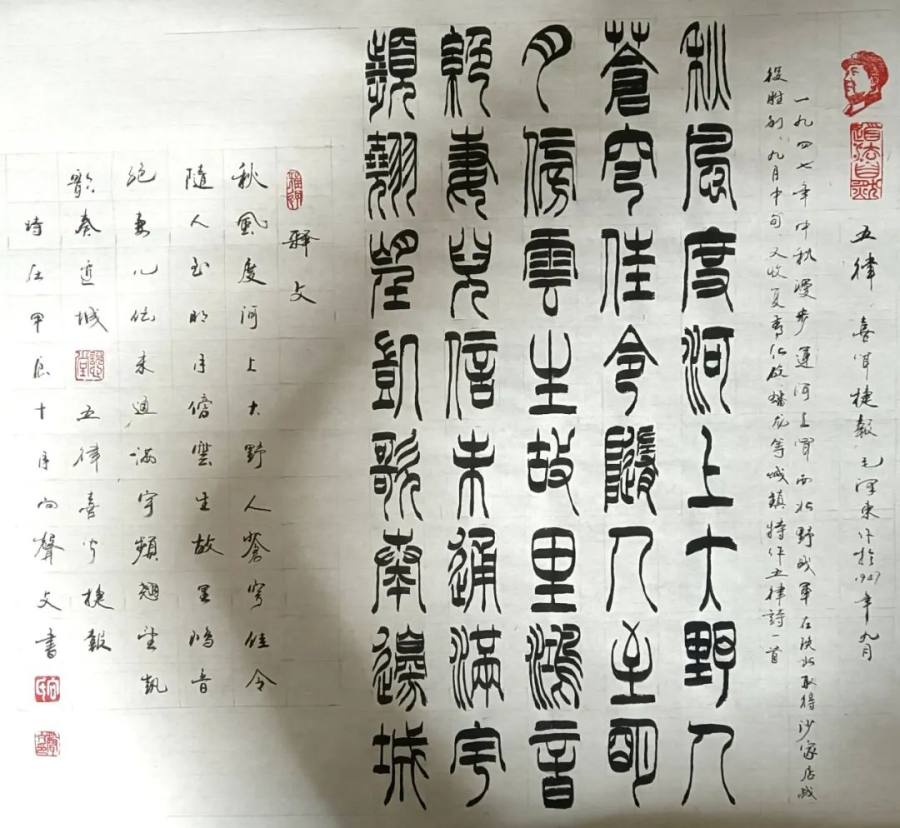 道法自然
五律.喜闻捷報 毛泽東作於1947年九月
一九四七年中秋漫步運河上闻西北野战軍在陕北取得沙家店战
役胜利、九月中旬又收复青化砭蟠龙等城镇特作五律詩一首
秋風度河上大野入
蒼穹佳令隨人至明
月傍雲生故里鴻音
絕妻兒信未通滿宇
頻翹望凱歌奏邊城
釋文
秋風度河上大野入蒼穹佳令
隨人至明月傍雲生故里鴻音
絕妻儿信未通满宇頻翹望凱
歌奏边城 五律喜闻捷報
時在甲辰十月向聲文書